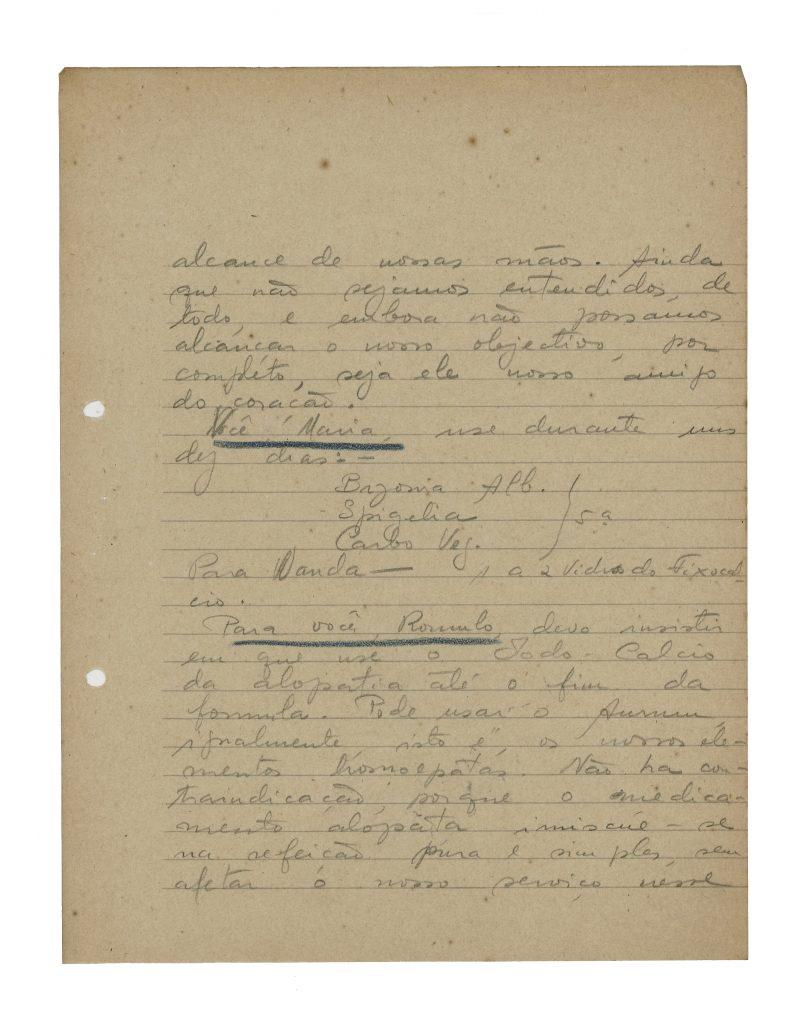 alcance de nossas mãos. Ainda
que não sejamos entendidos, de
todo, e embora não possamos
alcançar o nosso objectivo, por
compléto, seja ele nosso amigo
do coração.
Você, Maria, use durante uns
dez dias: -
Bryonia Alb.
Spigelia } 5ª
Carbo Veg.
Para Wanda — 1 a 2 vidros do Fixocal-
cio.
Para você, Romulo, devo insistir
em que use o Iodo-Calcio
da alopatia até o fim da
formula. Pode usar o Aurum,
igualmente, isto é, os nossos ele-
mentos homoepátas. Não ha con-
traindicação, porque o medica-
mento alopáta imiscúe-se
na refeição pura e simples, sem
afetar o nosso serviço nesse